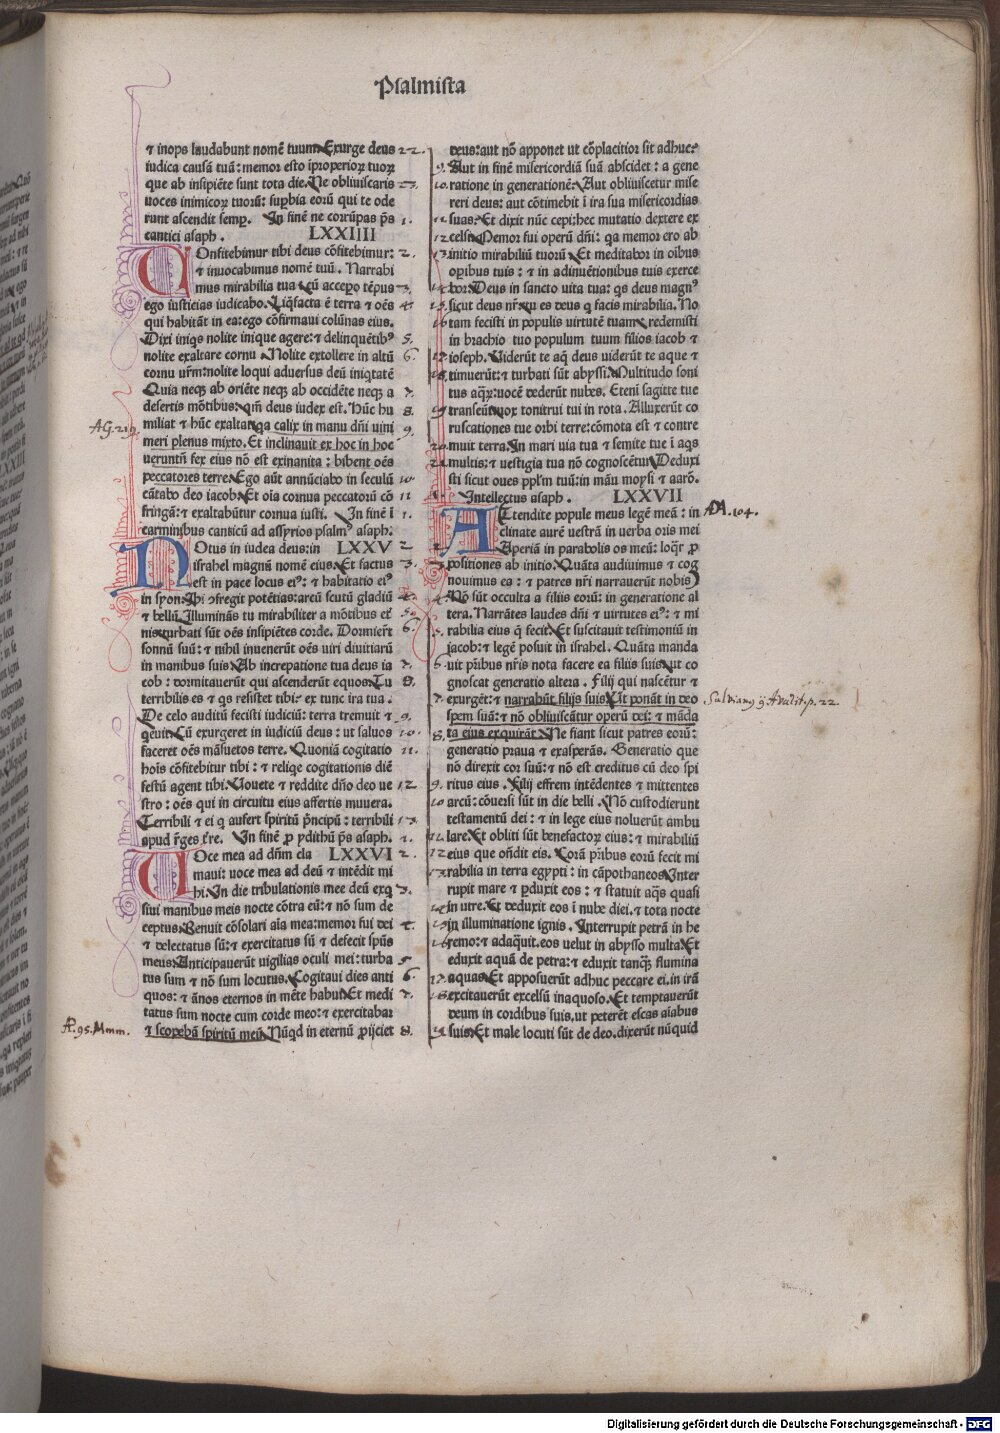 Psalmista
⁊ inops laudabunt nomē tuum. Exurge deus 22.
iudica causā tuā: memor esto īproperioꝝ tuoꝝ
que ab insipiēte sunt tota die. Ne obliuiscaris 23.
uoces inimicoꝝ tuorū: supbia eorū qui te ode
runt ascendit semꝑ. In finē ne corrūpas ps̄ 1.
cantici asaph. LXXIIII
COnfitebimur tibi deus cōfitebimur: 2.
⁊ inuocabimus nomē tuū. Narrabi
mus mirabilia tua: cū accepo tēpus 3.
ego iusticias iudicabo. Liq̄facta ē terra ⁊ oēs 4.
qui habitāt in ea: ego cōfirmaui colūnas eius.
Dixi iniqs nolite inique agere: ⁊ delinquētibꝰ 5.
nolite exaltare cornu. Nolite extollere in altū 6.
cornu ur̄m: nolite loqui aduersus deū iniqtatē
Quia neqꝫ ab oriēte neqꝫ ab occidēte neqꝫ a 7.
desertis mōtibus: qm̄ deus iudex est. Hūc hu 8.
miliat ⁊ hūc exaltat: qa calix in manu dn̄i uini 9.
AG. 219.
meri plenus mixto. Et inclinauit ex hoc in hoc
ueruntn̄ fex eius nō est exinanita: bibent oēs
peccatores terre. Ego aūt annūciabo in seculū 10
cātabo deo iacob. Et oīa cornua peccatorū cō 11
fringā: ⁊ exaltabūtur cornua iusti. In finē ī 1.
carminibus canticū ad assyrios psalmꝰ asaph.
NOtus in iudea deus: in LXXV 2
israhel magnū nomē eius. Et factus 3.
est in pace locus eiꝰ: ⁊ habitatio eiꝰ
in syon. Ibi ↄfregit potētias: arcū scutū gladiū 4.
⁊ bellū. Illuminās tu mirabiliter a mōtibus et 5.
nis: turbati sūt oēs insipiētes corde. Dormier̄t 6.
sonnū suū: ⁊ nihil inuenerūt oēs uiri diuitiarū
in manibus suis. Ab increpatione tua deus ia 7.
cob: dormitauerūt qui ascenderūt equos. Tu 8.
terribilis es ⁊ qs resistet tibi: ex tunc ira tua.
De celo auditū fecisti iudiciū: terra tremuit ⁊ 9.
qeuit. Cū exurgeret in iudiciū deus: ut saluos 10.
faceret oēs māsuetos terre. Quoniā cogitatio 11.
hoīs cōfitebitur tibi: ⁊ reliqe cogitationis diē
festū agent tibi. Uouete ⁊ reddite dn̄o deo ue 12.
stro: oēs qui in circuitu eius affertis munera.
Terribili ⁊ ei q aufert spiritū prīcipū: terribili 13.
apud r̄ges t̄re. In finē ꝓ ydithū ps̄ asaph. 1.
UOce mea ad dn̄m cla LXXVI 2.
maui: uoce mea ad deū ⁊ intēdit mi
hi. In die tribulationis mee deū exq 3.
siui manibus meis nocte cōtra eū: ⁊ nō sum de
ceptus. Renuit cōsolari aīa mea: memor fui dei 4.
⁊ delectatus sū: ⁊ exercitatus sū ⁊ defecit spūs
meus. Anticipauerūt uigilias oculi mei: turba 5
tus sum ⁊ nō sum locutus. Cogitaui dies anti 6.
quos: ⁊ ānos eternos in mēte habui. Et medi 7.
tatus sum nocte cum corde meo: ⁊ exercitabar
⁊ scopebā spiritū meū. Nūqd in eternū ꝓijciet 8.
AP. 95. Mmm.
deus: aut nō apponet ut cōplacitior sit adhuc.
9. Aut in finē misericordiā suā abscidet: a gene
10. ratione in generationē. Aut obliuiscetur mise
reri deus: aut cōtinebit ī ira sua misericordias
11 suas. Et dixit nūc cepi: hec mutatio dextere ex
12 celsi. Memor fui operū dn̄i: qa memor ero ab
13 initio mirabiliū tuorū. Et meditabor in oībus
oꝑibus tuis: ⁊ in adinuētionibus tuis exerce
14 bor. Deus in sancto uita tua: qs deus magnꝰ
15. sicut deus nr̄: tu es deus q facis mirabilia. No
16. tam fecisti in populis uirtutē tuam: redemisti
in brachio tuo populum tuum filios iacob ⁊
17 ioseph. Uiderūt te aq̄ deus uiderūt te aque ⁊
18. timuerūt: ⁊ turbati sūt abyssi. Multitudo soni
tus aqꝝ: uocē dederūt nubes. Etenī sagitte tue
19 transeūt: uox tonitrui tui in rota. Alluxerūt co
ruscationes tue orbi terre: cōmota est ⁊ contre
20. muit terra. In mari uia tua ⁊ semite tue ī aqs
21. multis: ⁊ uestigia tua nō cognoscētur. Deduxi
sti sicut oues ppl̄m tuū: in māu moysi ⁊ aarō.
1. Intellectus asaph. LXXVII
ATtendite popule meus legē meā: in
AA. 104.
clinate aurē uestrā in uerba oris mei
2. Aperiā in parabolis os meū: loqr̄ ꝓ
3. positiones ab initio. Quāta audiuimus ⁊ cog
nouimus ea: ⁊ patres nr̄i narrauerūt nobis
4 Nō sūt occulta a filiis eorū: in generatione al
tera. Narrātes laudes dn̄i ⁊ uirtutes eiꝰ: ⁊ mi
5. rabilia eius q̄ fecit. Et suscitauit testimoniū in
iacob: ⁊ legē posuit in israhel. Quāta manda
6. uit pr̄ibus nr̄is nota facere ea filiis suis: ut co
gnoscat generatio altera. Filij qui nascētur ⁊
7. exurgēt: ⁊ narrabūt filijs suis. Ut ponāt in deo
Salvianus
spem suā: ⁊ nō obliuiscātur operū dei: ⁊ māda
8. ta eius exquirāt. Ne fiant sicut patres eorū:
generatio praua ⁊ exasperās. Generatio que
nō direxit cor suū: ⁊ nō est creditus cū deo spi
9. ritus eius. Filij effrem intēdentes ⁊ mittentes
10 arcū: cōuersi sūt in die belli. Nō custodierunt
testamentū dei: ⁊ in lege eius noluerūt ambu
11. lare. Et obliti sūt benefactoꝝ eius: ⁊ mirabiliū
12 eius que on̄dit eis. Corā pr̄ibus eorū fecit mi
13. rabilia in terra egypti: in cāpothaneos. Inter
rupit mare ⁊ ꝑduxit eos: ⁊ statuit aqs quasi
14 in utre. Et deduxit eos ī nube diei, ⁊ tota nocte
15 in illuminatione ignis. Interrupit petrā in he
16. remo: ⁊ adaq̄uit. eos uelut in abysso multa. Et
eduxit aquā de petra: ⁊ eduxit tanqꝫ flumina
17 aquas. Et apposuerūt adhuc peccare ei. in irā
18. excitauerūt excelsū inaquoso. Et temptauerūt
deum in cordibus suis, ut peterēt escas aīabus
19 suis. Et male locuti sūt de deo. dixerūt nūquid
Digitalisierung gefördert durch die Deutsche Forschungsgemeinschaft - DFG